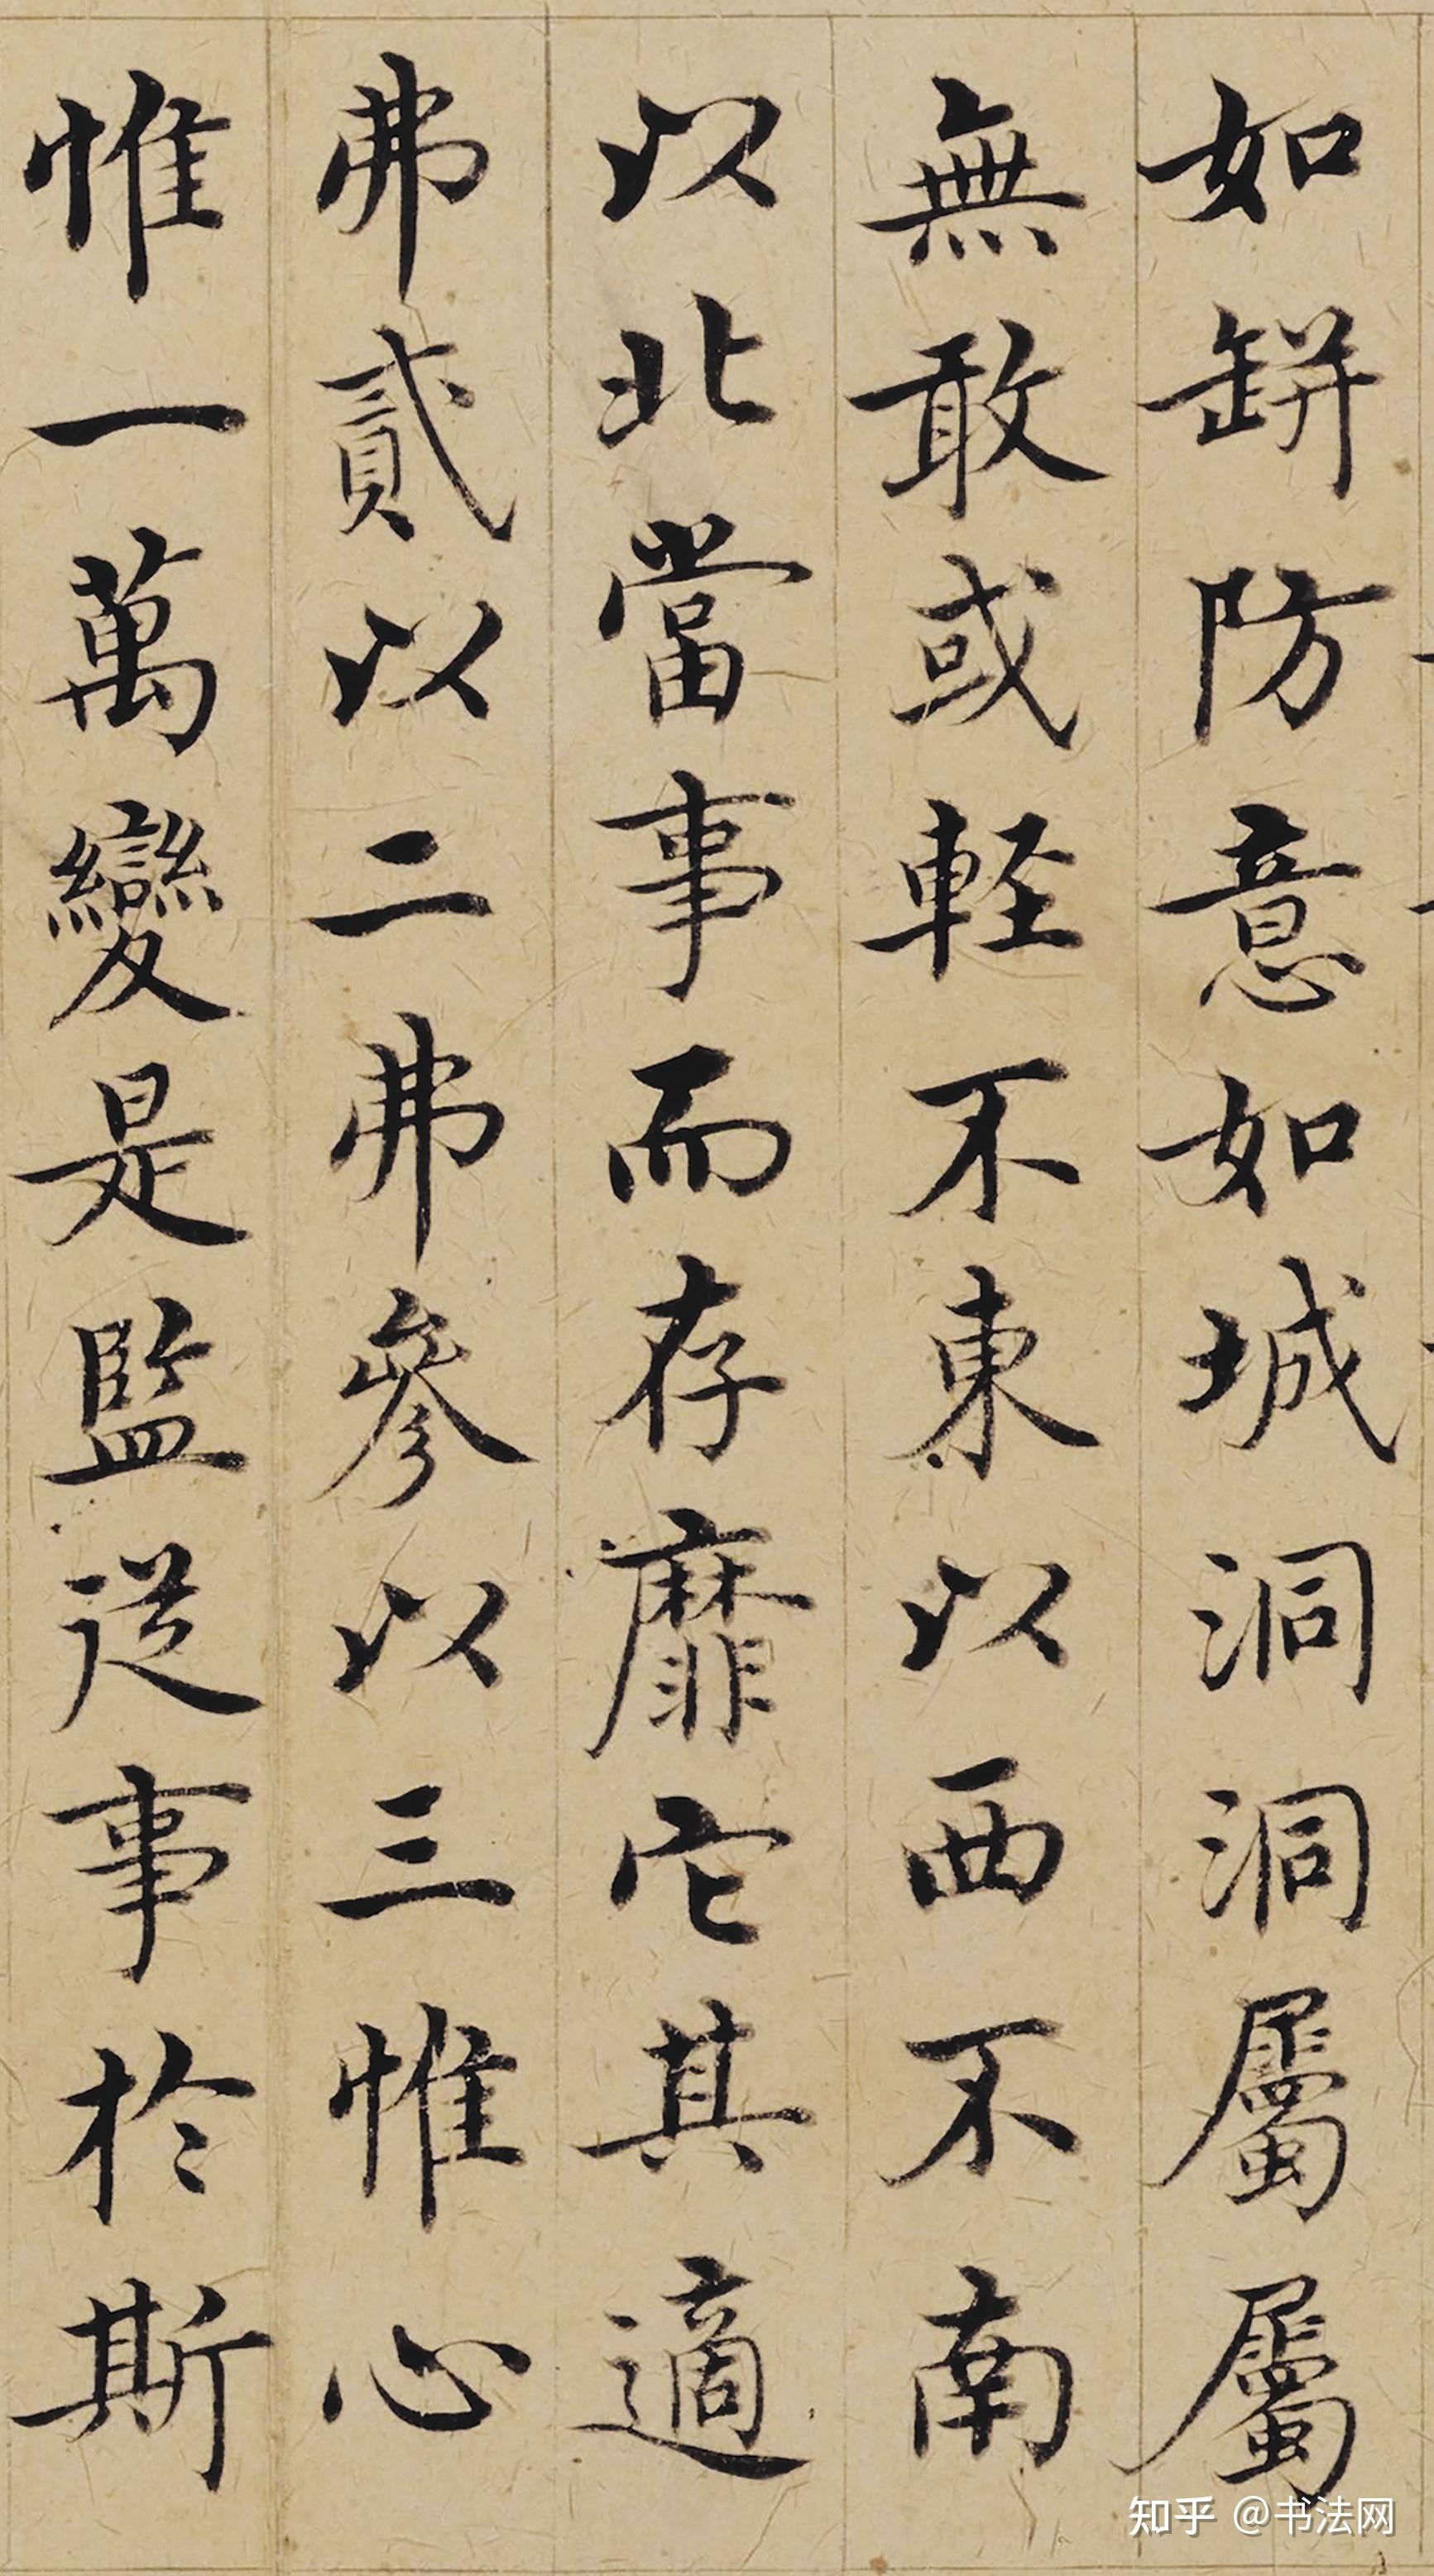 如缾防意如城洞洞屬屬
無敢或軽不東以西不南
以北當事而存靡它其適
弗貳以二弗參以三惟心
惟一萬變是監従事於斯
知乎 @书法网